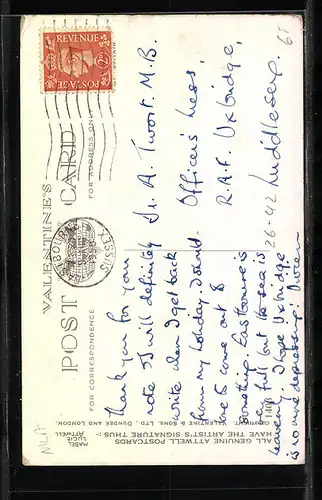 REVENUE
POSTAGE
VALENTINE'S
POST CARD
FOR CORRESPONDENCE
FOR ADDRESS ONLY
Thank you for your
note & I will definitely
write when I get back
from my holiday.
come out
Eastbourne is
full but the sea is
heavenly. I hope Uxbridge
is no more depressing.
Dr. A. Twort. M.B.
Officer's Mess,
R.A.F. Uxbridge,
Middlesex.
26-42
68
ALL GENUINE ATTWELL POSTCARDS
HAVE THE ARTIST'S SIGNATURE THUS:-
MABEL
LUCIE
ATTWELL
COPYRIGHT. VALENTINE & SONS, LTD., DUNDEE AND LONDON.